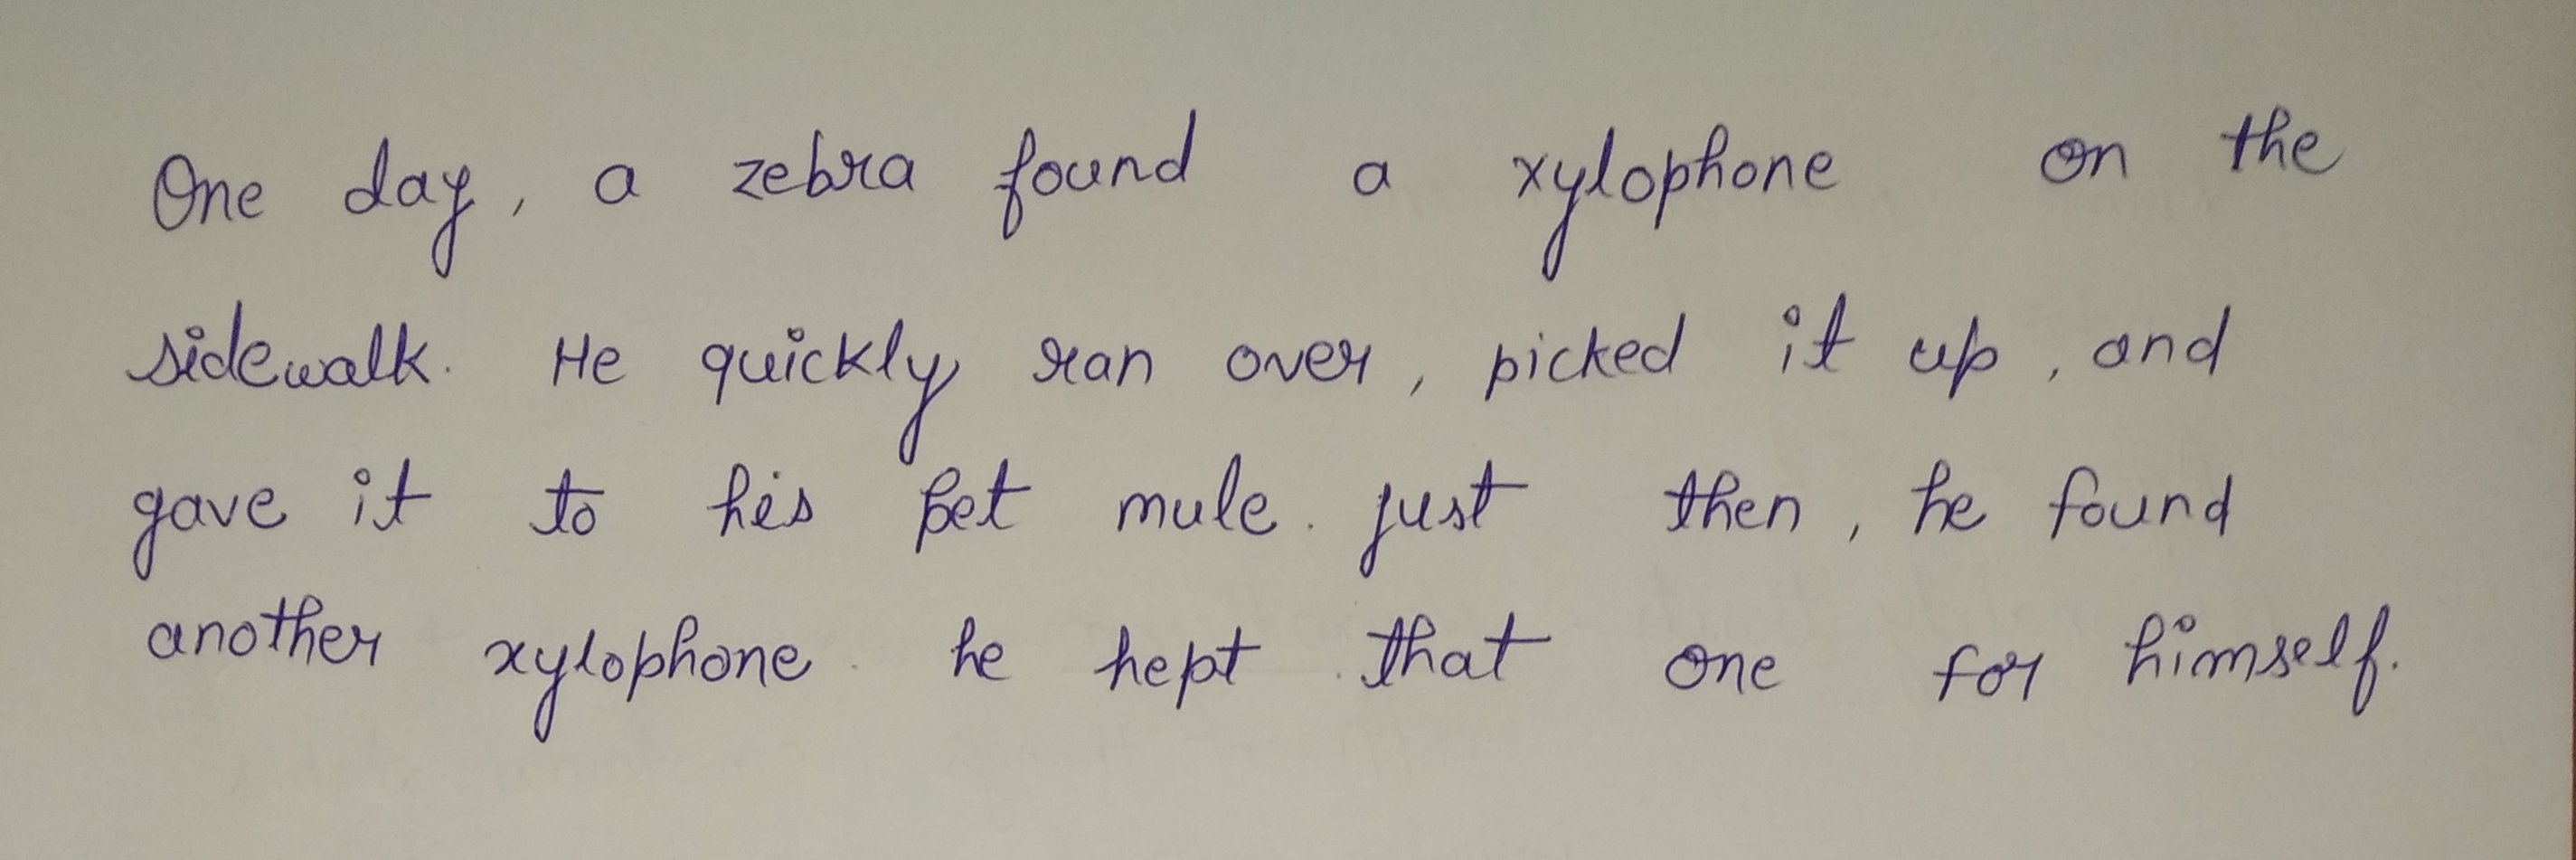 One day, a zebra found a xylophone on the
sidewalk. He quickly ran over, picked it up, and
gave it to his pet mule. just then, he found
another xylophone. he hept that one for himself.